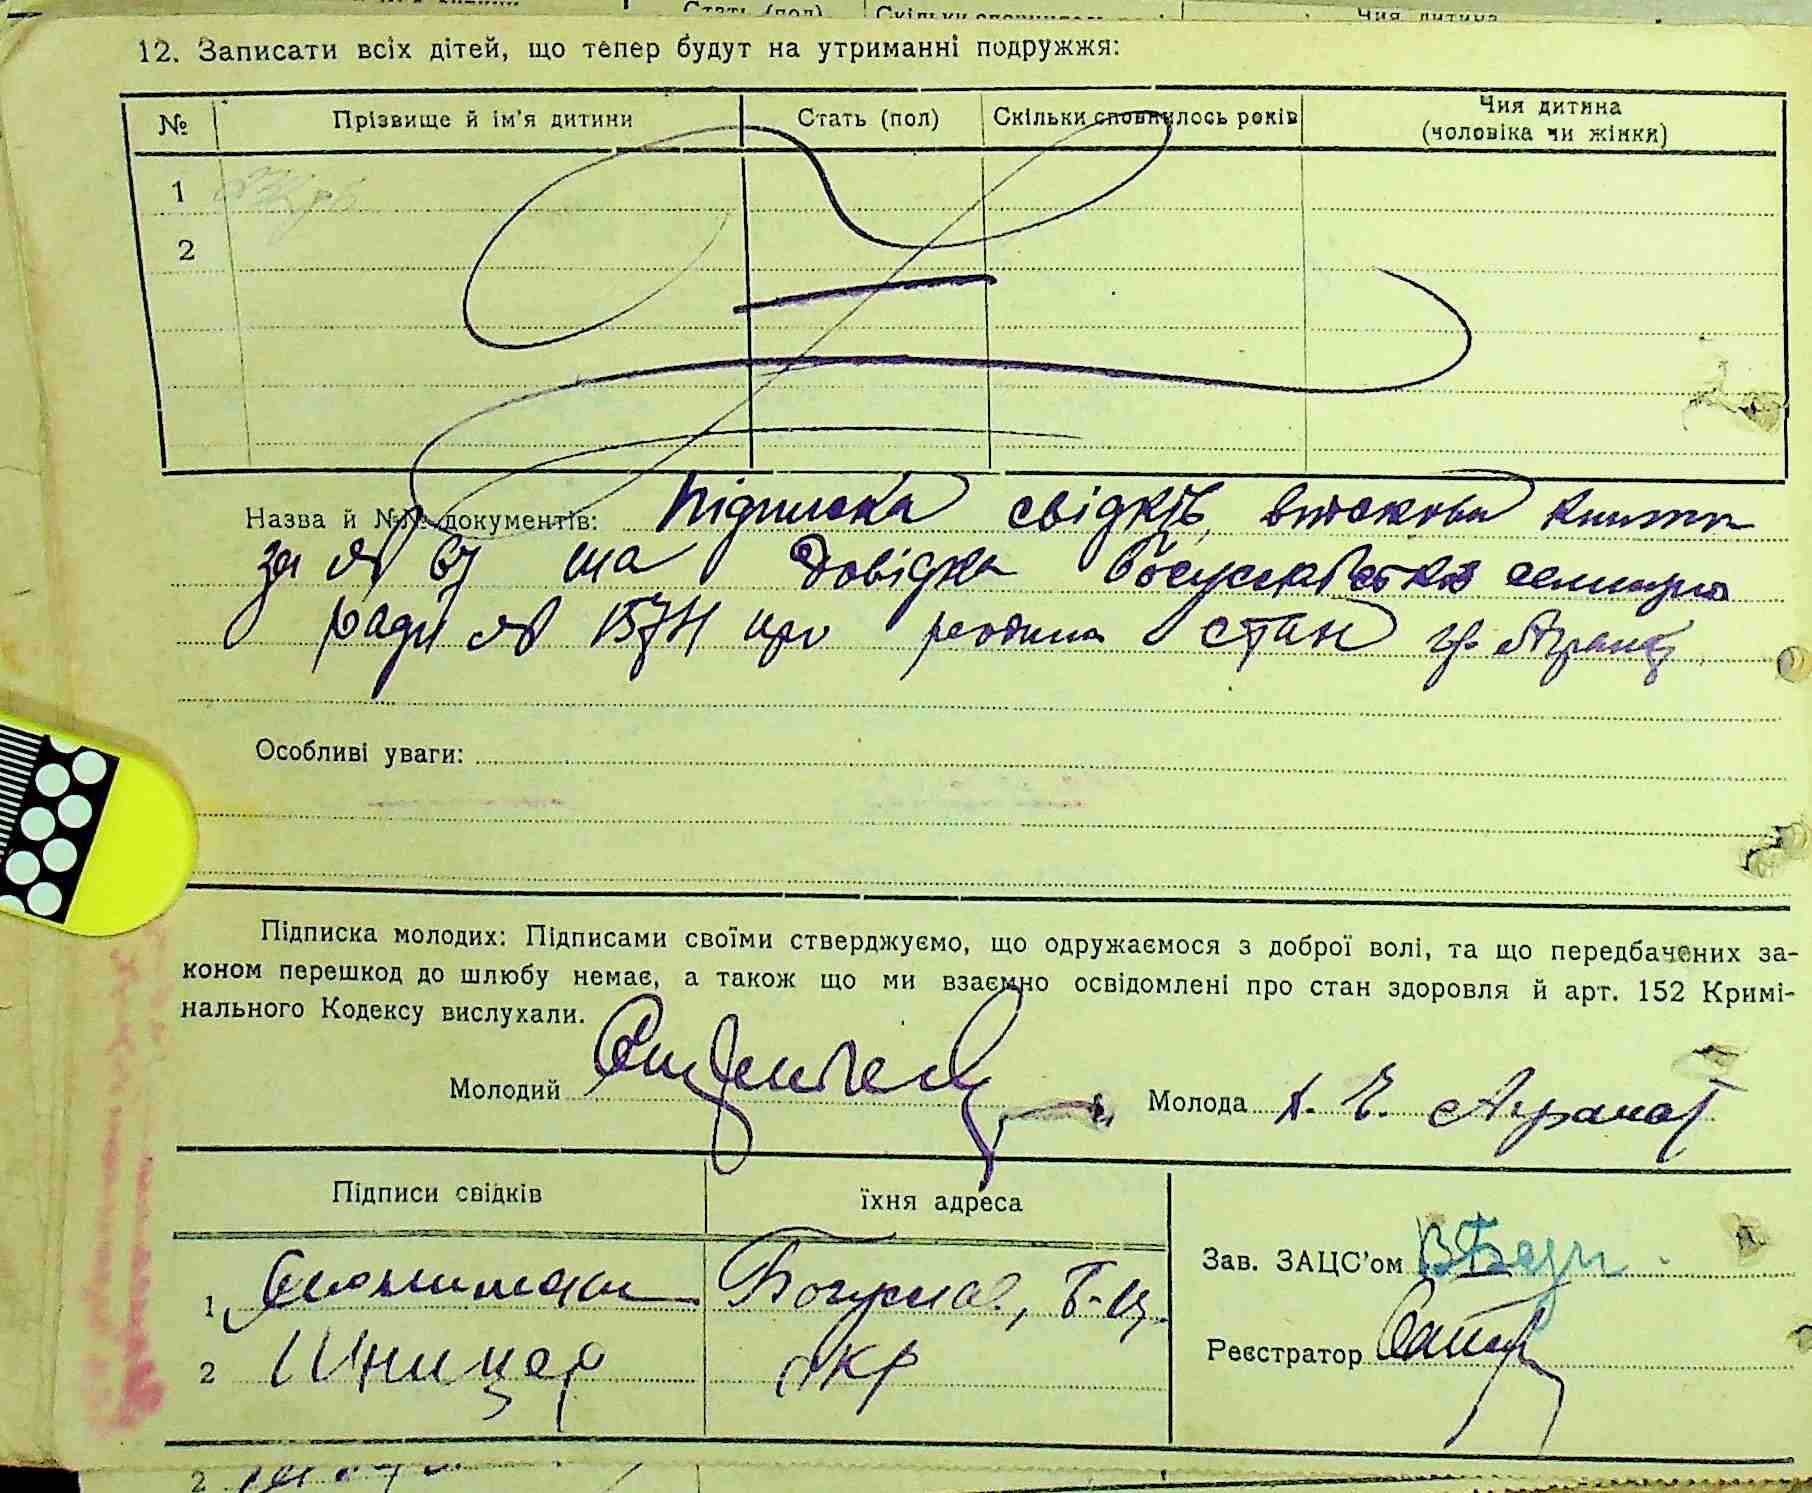 12. Записати всіх дітей, що тепер будут на утриманні подружжя:
№ Прізвище й ім'я дитини Стать (пол) Скільки сповнилось років Чия дитина (чоловіка чи жінки)
1
2
Назва й №№ документів: Підписка свідків, військова книжка
за № 67 та довідка Богуславської селищно
ради № 1574 про родини стан гр.
Особливі уваги:
Підписка молодих: Підписами своїми стверджуємо, що одружаємося з доброї волі, та що передбачених за-
коном перешкод до шлюбу немає, а також що ми взаємно освідомлені про стан здоровля й арт. 152 Кримі-
нального Кодексу вислухали.
Молодий Молода А. Є.
Підписи свідків їхня адреса
Зав. ЗАЦС'ом
1 Богуслав, Б-Ц.
Реєстратор
2 Шницер окр
2